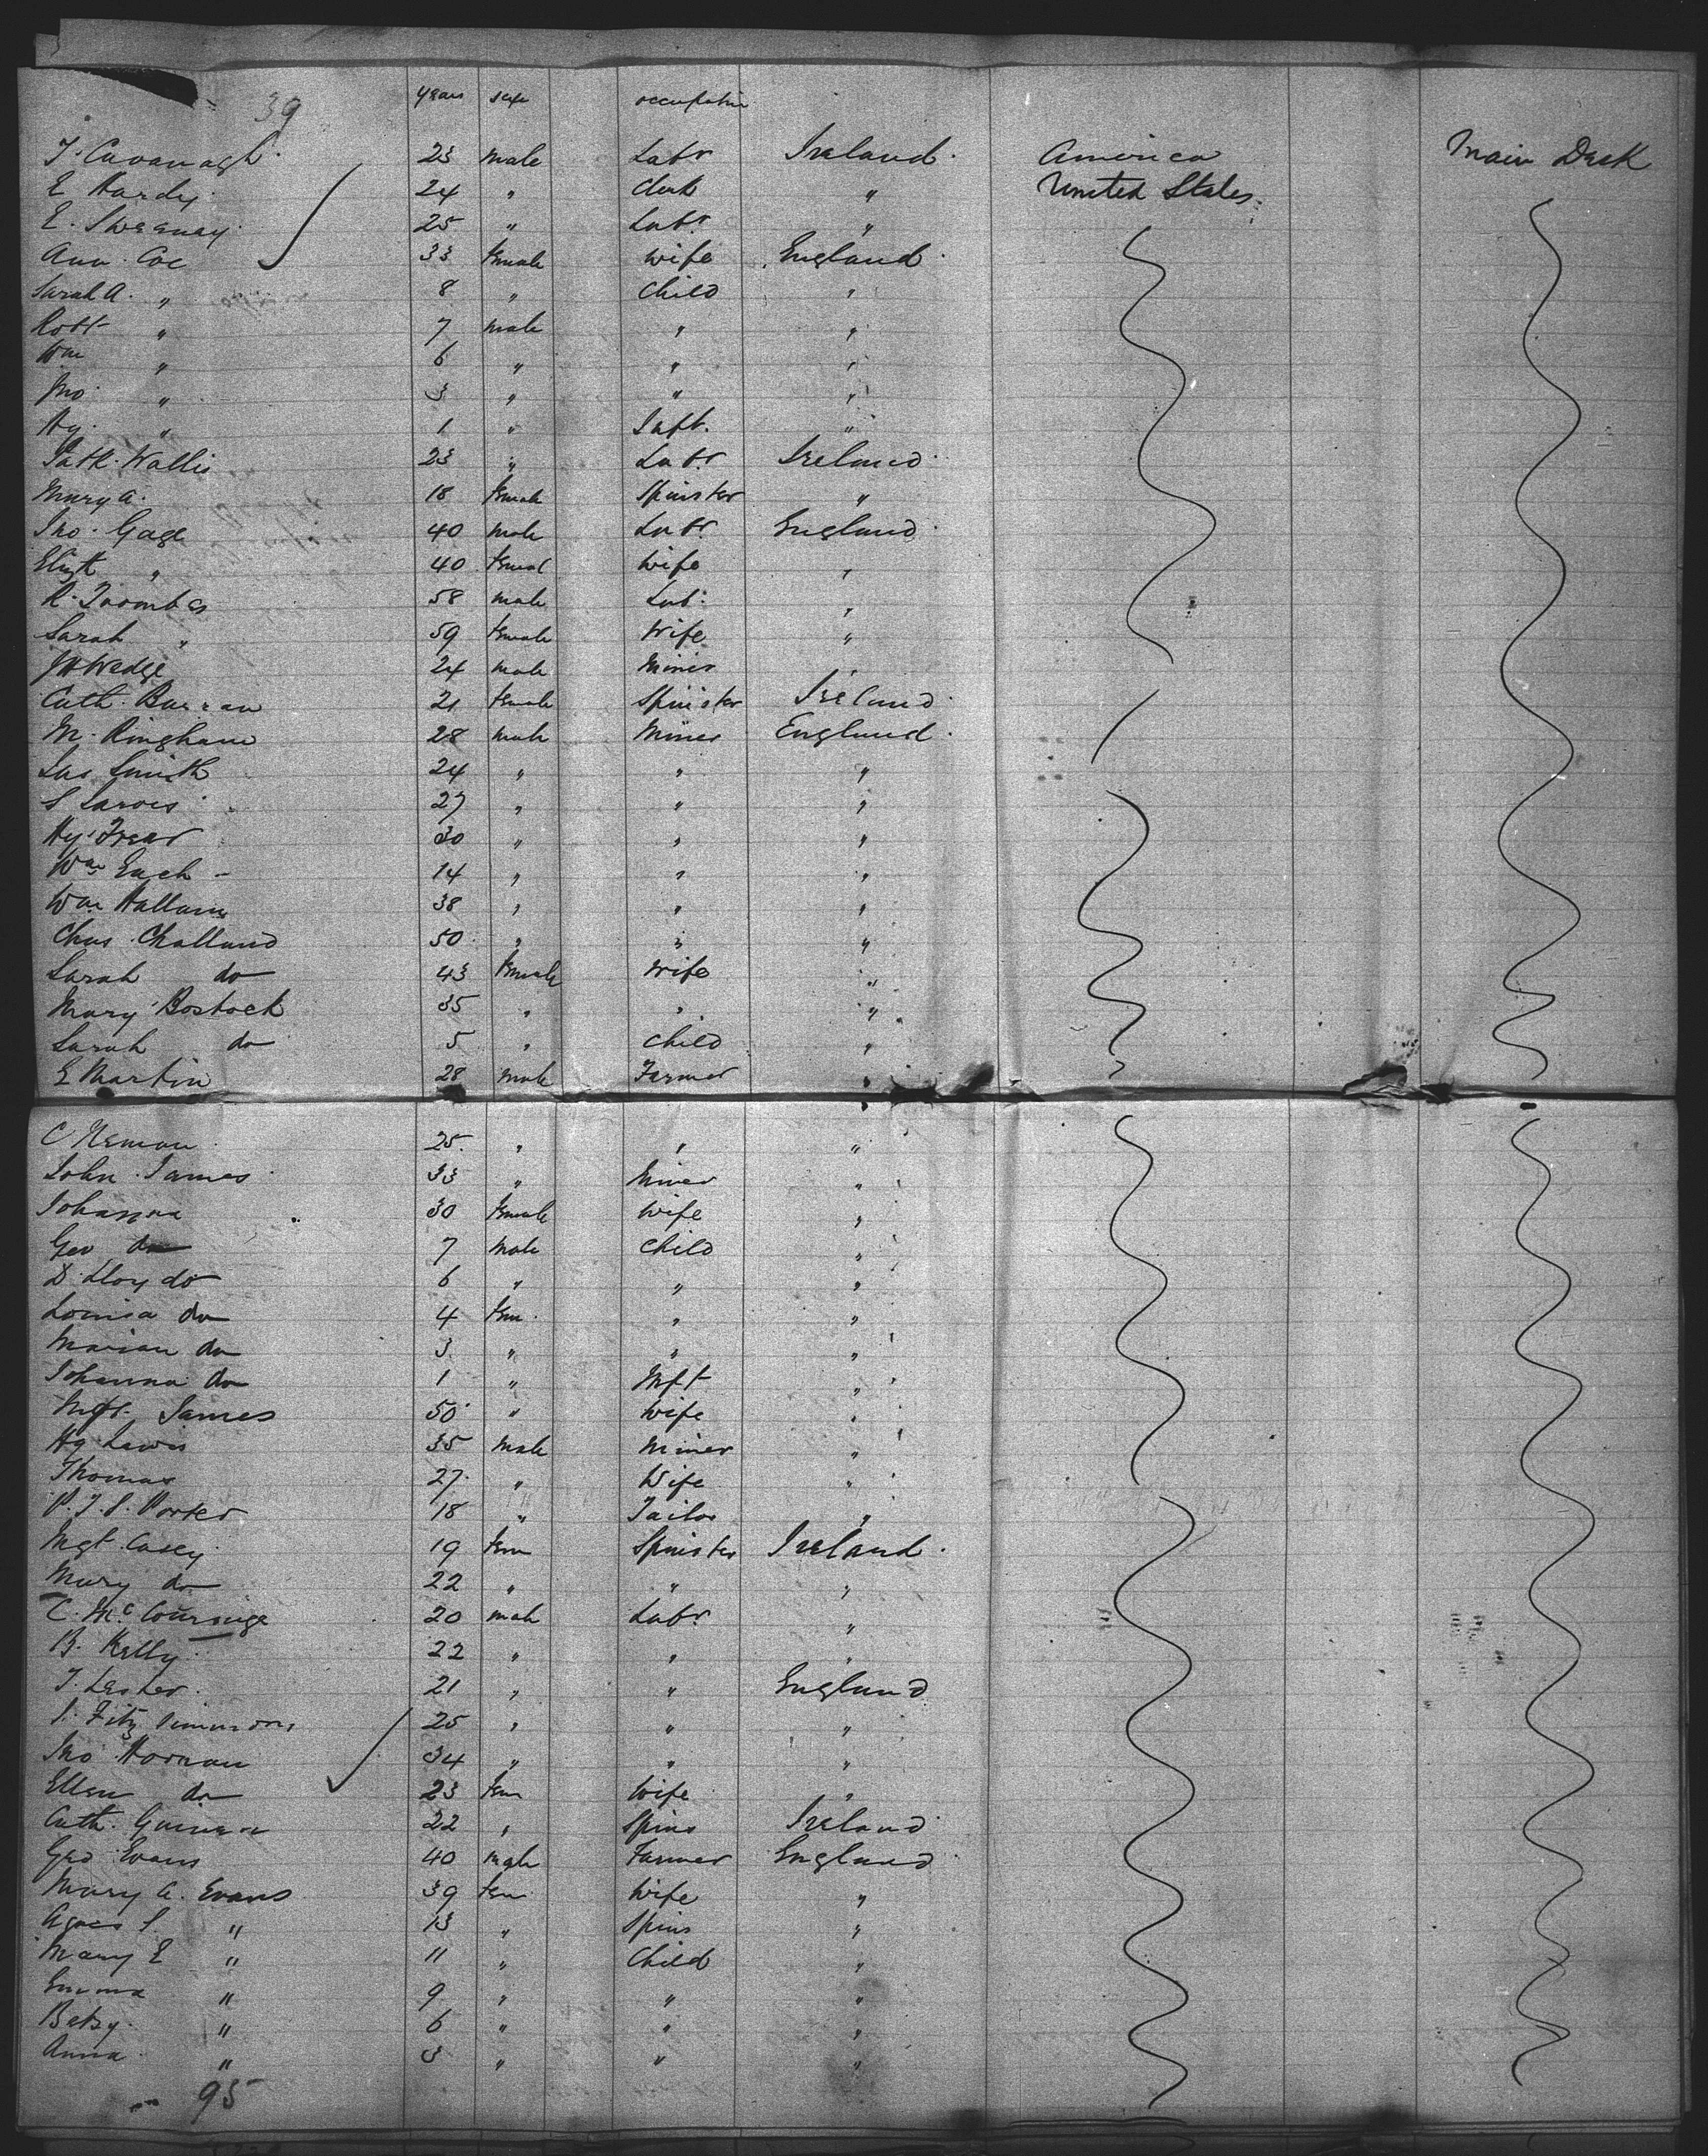 39 years sex occupation
T. Cavanagh 23 male Labr Ireland America Main Deck
E Hardy 24 " Clerk " United States
E. Sweeney 25 " Labr "
Ann Coe 33 female wife England
Sarah A. " 8 " Child "
Robt " 7 male " "
Wm " 6 " " "
Jno " 3 " " "
Hy. " 1 " Inft. "
Patk. Wallis 23 " Labr Ireland
Mary A. 18 female Spinster "
Jno. Gage 40 male Labr England
Elizth " 40 femal wife "
R. Toombes 58 male Lab. "
Sarah " 59 female wife "
Wedge 24 male miner "
Cath. Curran 21 female Spinster Ireland
M. Ringham 28 male Miner England
Jas Smith 24 " " "
S Jarvis 27 " " "
Hy. Frear 30 " " "
Wm 14 " " "
Wm Hallam 38 " " "
Chas. Challand 50 " " "
Sarah do 43 female wife "
Mary Bostock 35 " " "
Sarah do 5 " child "
E Martin 28 male Farmer "
C 25 " " "
John James 33 " Miner "
Johanna 30 female wife "
Geo do 7 male child "
D. Lloyd do 6 " " "
Louisa do 4 fem. " "
Marian do 3 " " "
Johanna do 1 " Inft "
Mgt. James 50 " wife "
Hy Lewis 35 male miner "
Thomas 27 " Wife "
P. J. S. Porter 18 " Tailor "
Mgt. Casey 19 fem Spinster Ireland
Mary do 22 " " "
C. Mc 20 male Labr "
B. Kelly 22 " " "
T. Lester 21 " " England
Fitz Simmons 25 " " "
Jno Hornan 34 " " "
Ellen do 23 fem wife "
Cath. 22 " Spins Ireland
Geo Evans 40 male Farmer England
Mary A. Evans 39 fem. wife "
Agnes S. " 13 " Spins "
Mary E " 11 " Child "
Emma " 9 " " "
Betsy. " 6 " " "
Anna " 3 " " "
95